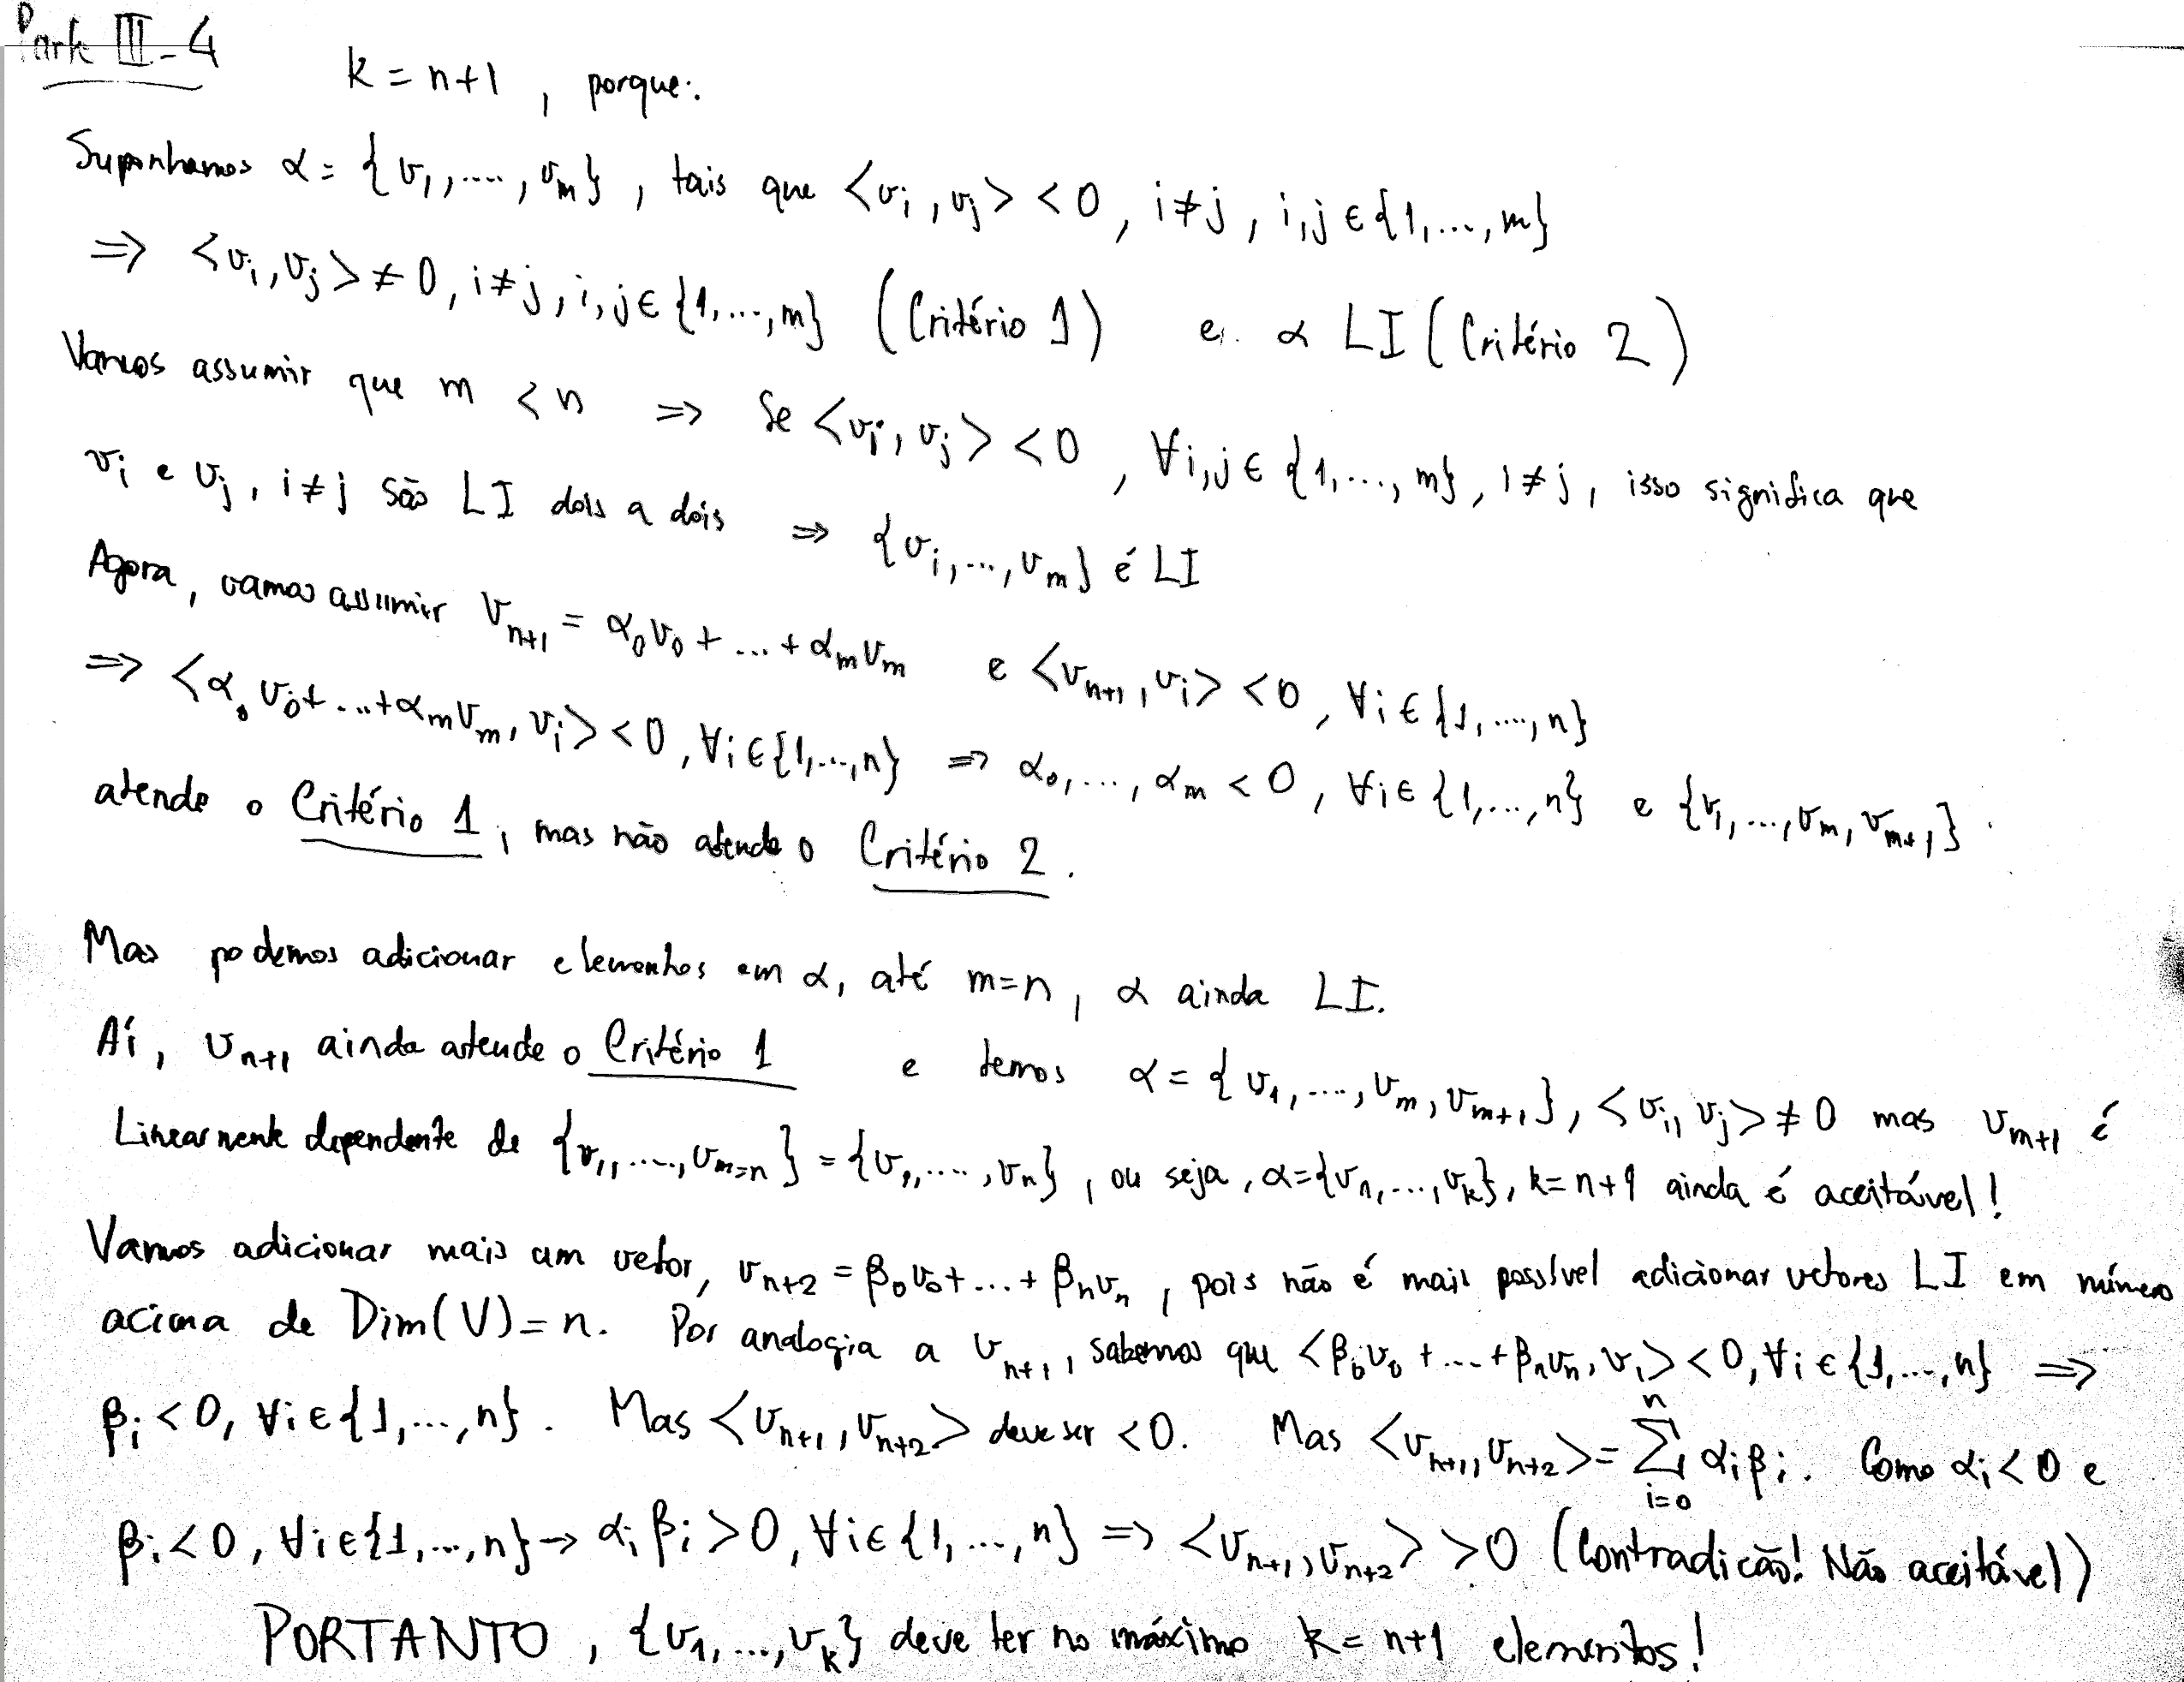 Parte III-4
k = n+1 , porque:
Suponhamos α = {v₁,....,vₘ} , tais que <vᵢ, vⱼ> < 0, i≠j, i,j ∈ {1,...,m}
=> <vᵢ, vⱼ> ≠ 0, i≠j, i,j ∈ {1,...,m} (Critério 1) e α LI (Critério 2)
Vamos assumir que m < n => Se <vᵢ, vⱼ> < 0 , ∀i,j ∈ {1,...,m}, i≠j, isso significa que
vᵢ e vⱼ, i≠j são LI dois a dois => {vᵢ,...,vₘ} é LI
Agora, vamos assumir vₙ₊₁ = α₀v₀ + ... + αₘvₘ e <vₙ₊₁, vᵢ> < 0, ∀i ∈ {1,....,n}
=> <α₀v₀+...+αₘvₘ, vᵢ> < 0, ∀i ∈ {1,...,n} => α₀,...,αₘ < 0, ∀i ∈ {1,...,n} e {v₁,...,vₘ,vₘ₊₁}
atende o Critério 1, mas não atende o Critério 2.
Mas podemos adicionar elementos em α, até m=n, α ainda LI.
Aí, vₙ₊₁ ainda atende o Critério 1 e temos α = {v₁,....,vₘ,vₘ₊₁}, <vᵢ, vⱼ> ≠ 0 mas vₘ₊₁ é
Linearmente dependente de {v₁,....,vₘ₌ₙ} = {v₁,....,vₙ}, ou seja, α={v₁,...,vₖ}, k=n+1 ainda é aceitável!
Vamos adicionar mais um vetor, vₙ₊₂ = β₀v₀+...+βₙvₙ, pois não é mais possível adicionar vetores LI em número
acima de Dim(V)=n. Por analogia a vₙ₊₁, sabemos que <β₀v₀+...+βₙvₙ, vᵢ> < 0, ∀i ∈ {1,...,n} =>
βᵢ < 0, ∀i ∈ {1,...,n}. Mas <vₙ₊₁, vₙ₊₂> deve ser < 0. Mas <vₙ₊₁, vₙ₊₂> = ∑ᵢ₌₀ⁿ αᵢβᵢ. Como αᵢ < 0 e
βᵢ < 0, ∀i ∈ {1,...,n} → αᵢβᵢ > 0, ∀i ∈ {1,...,n} => <vₙ₊₁, vₙ₊₂> > 0 (Contradição! Não aceitável)
PORTANTO, {v₁,...,vₖ} deve ter no máximo k = n+1 elementos!